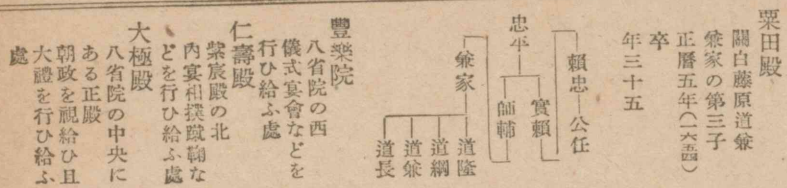 粟田殿
關白藤原道兼
兼家の第三子
正曆五年(一六五四)
卒
年三十五
賴忠―公任
忠平
實賴
師輔
兼家
道隆
道綱
道兼
道長
豐樂院
八省院の西
儀式宴會などを
行ひ給ふ處
仁壽殿
紫宸殿の北
內宴相撲蹴鞠な
どを行ひ給ふ處
大極殿
八省院の中央に
ある正殿
朝政を視給ひ且
大禮を行ひ給ふ
處